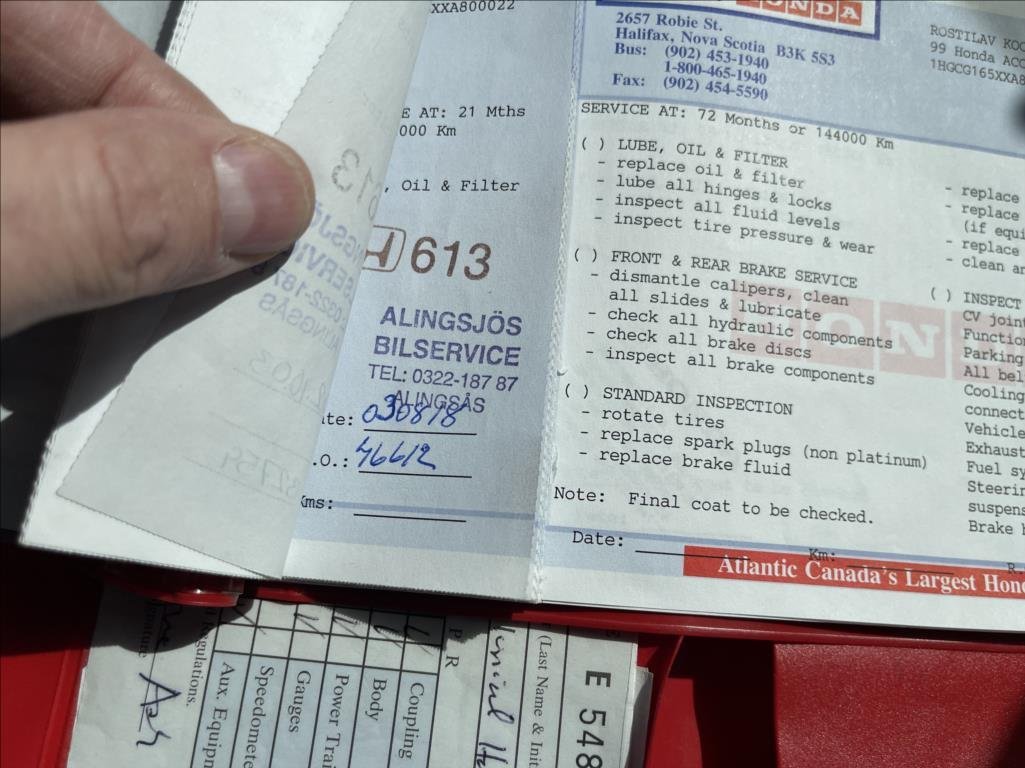 XXA800022
E AT: 21 Mths
000 Km
, Oil & Filter
613
ALINGSJÖS
BILSERVICE
TEL: 0322-187 87
ALINGSÅS
te: 030818
.O.: 46612
Kms:
HONDA
2657 Robie St.
Halifax, Nova Scotia B3K 5S3
Bus: (902) 453-1940
1-800-465-1940
Fax: (902) 454-5590
ROSTILAV KOC
99 Honda ACC
1HGCG165XXA8
SERVICE AT: 72 Months or 144000 Km
( ) LUBE, OIL & FILTER
- replace oil & filter
- lube all hinges & locks
- inspect all fluid levels
- inspect tire pressure & wear
( ) FRONT & REAR BRAKE SERVICE
- dismantle calipers, clean
all slides & lubricate
- check all hydraulic components
- check all brake discs
- inspect all brake components
( ) STANDARD INSPECTION
- rotate tires
- replace spark plugs (non platinum)
- replace brake fluid
Note: Final coat to be checked.
Date:
Km:
R
- replace
- replace
(if equi
- replace
- clean an
( ) INSPECT
CV join
Functio
Parking
All bel
Cooling
connect
Vehicle
Exhaust
Fuel sy
Steerin
suspens
Brake
Atlantic Canada's Largest Hon
E 548
(Last Name & Init
P R
Coupling
Body
Power Trai
Gauges
Speedomete
Aux. Equipm
Regulations.